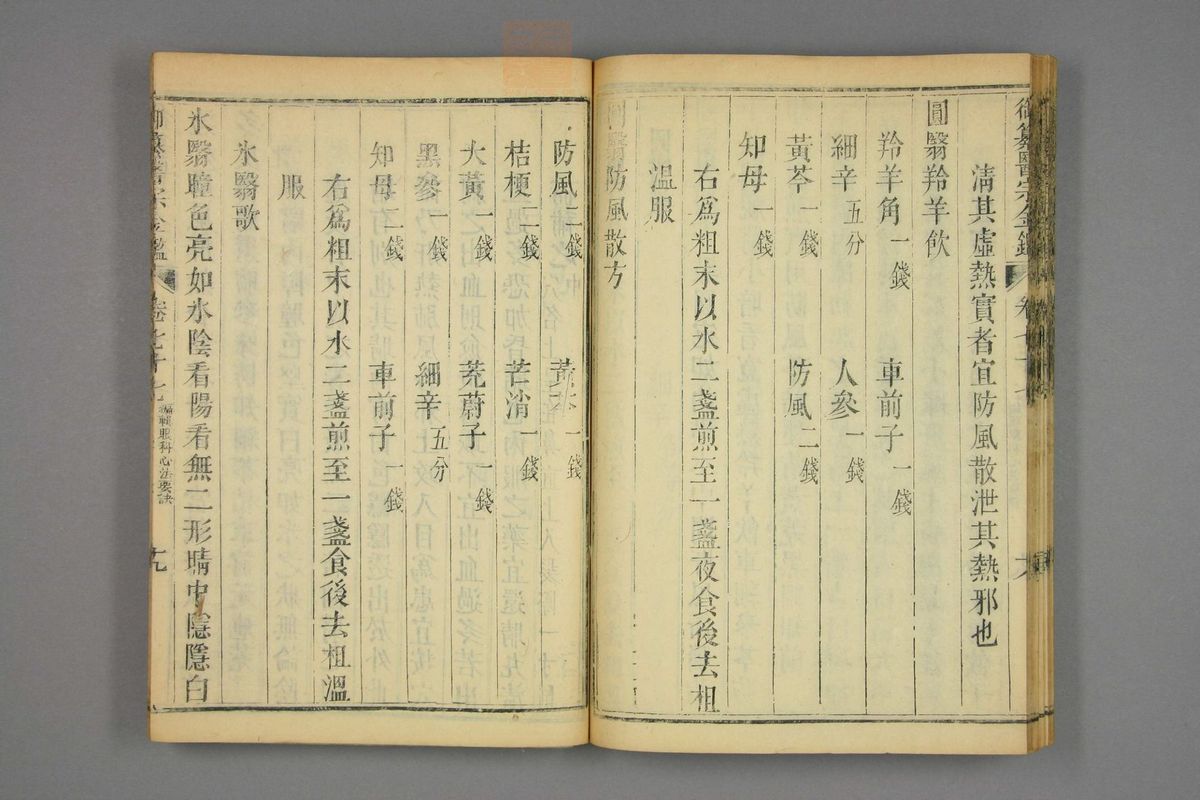 御纂醫宗金鑑 卷七十七 十八
淸其虛熱實者宜防風散泄其熱邪也
圓翳羚羊飮
羚羊角一錢 車前子一錢
細辛五分 人參一錢
黃芩一錢 防風二錢
知母一錢
右爲粗末以水二盞煎至一盞夜食後去柤
溫服
圓翳防風散方
防風二錢 黃芩一錢
桔梗二錢 芒消一錢
大黃一錢 茺蔚子一錢
黑參一錢 細辛五分
知母二錢 車前子一錢
右爲粗末以水二盞煎至一盞食後去柤溫
服
氷翳歌
氷翳瞳色亮如氷陰看陽看無二形睛中隱隱白
御纂醫宗金鑑 卷七十七 編輯眼科心法要訣 十九